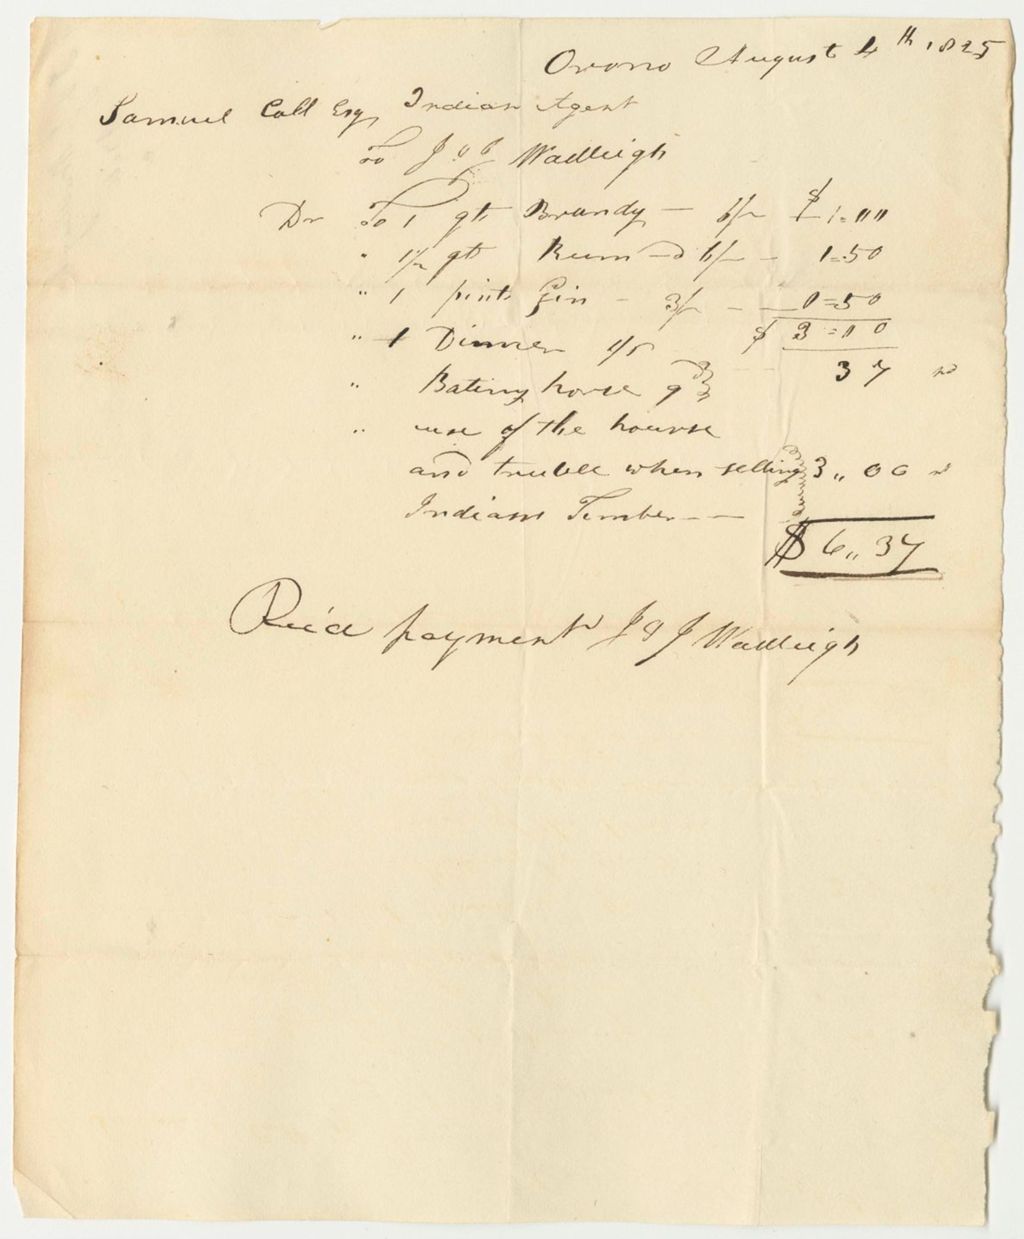 Orono August 4th 1825
Samuel Call Esq Indian Agent
To J & J Wadleigh
Dr To 1 qt Brandy — 6/– $ 1=00
" 1/2 qt Rum 6/– – 1=50
" 1 pint Gin – 3/– – 0=50
" 1 Dinner 1/6 $ 3=00
" Bating horse 9 37
" use of the hourse
and truble when selling 3,, 00
Indians Timber — —
$ 6,, 37
Rec'd payment J & J Wadleigh